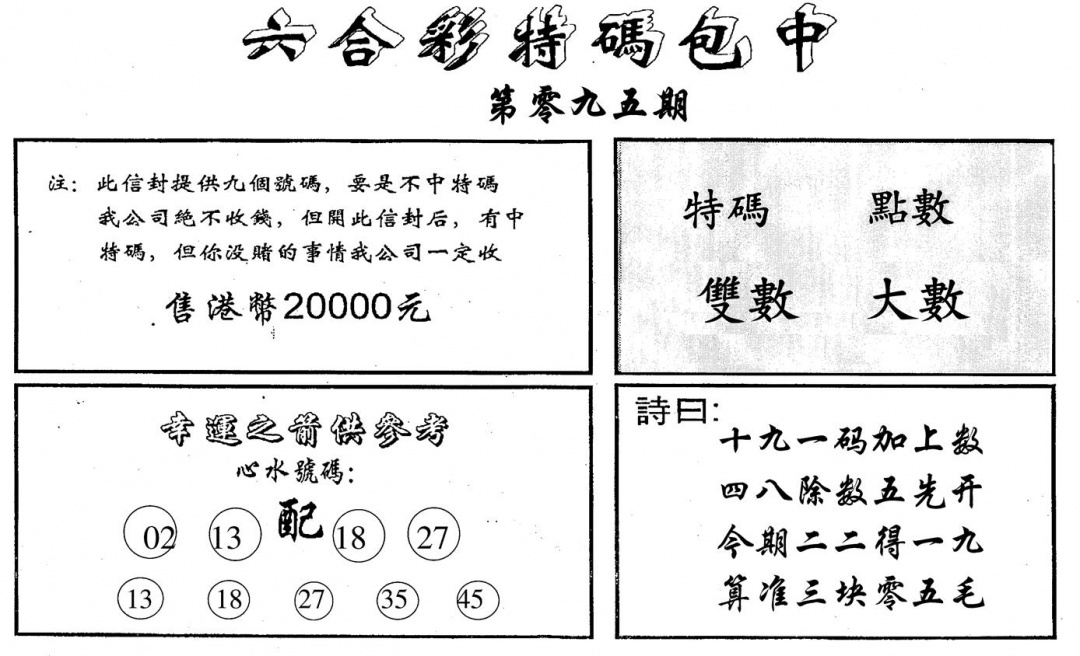 六合彩特碼包中
第零九五期
注：此信封提供九個號碼，要是不中特碼
我公司絕不收錢，但開此信封后，有中
特碼，但你没賭的事情我公司一定收
售港幣20000元
特碼 點數
雙數 大數
幸運之箭供參考
心水號碼：
配
02 13 18 27
13 18 27 35 45
詩曰：
十九一码加上数
四八除数五先开
今期二二得一九
算准三块零五毛